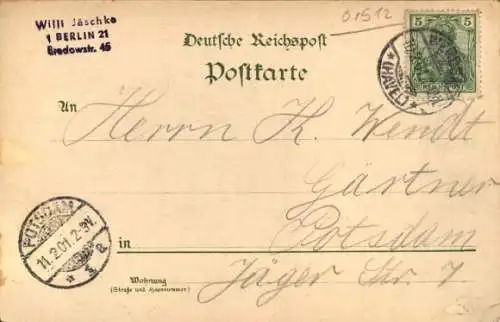 Willi Jäschke
1 BERLIN 21
Bredowstr. 45
01512
5 5
Deutsche Reichspost
Postkarte
(HAVEL)
An
Herrn K. Wendt
Gärtner
in Potsdam
Jäger Str. 7
Wohnung
(Straße und Hausnummer)
POTSDAM
11.2.01.2-3N.
* 3 a